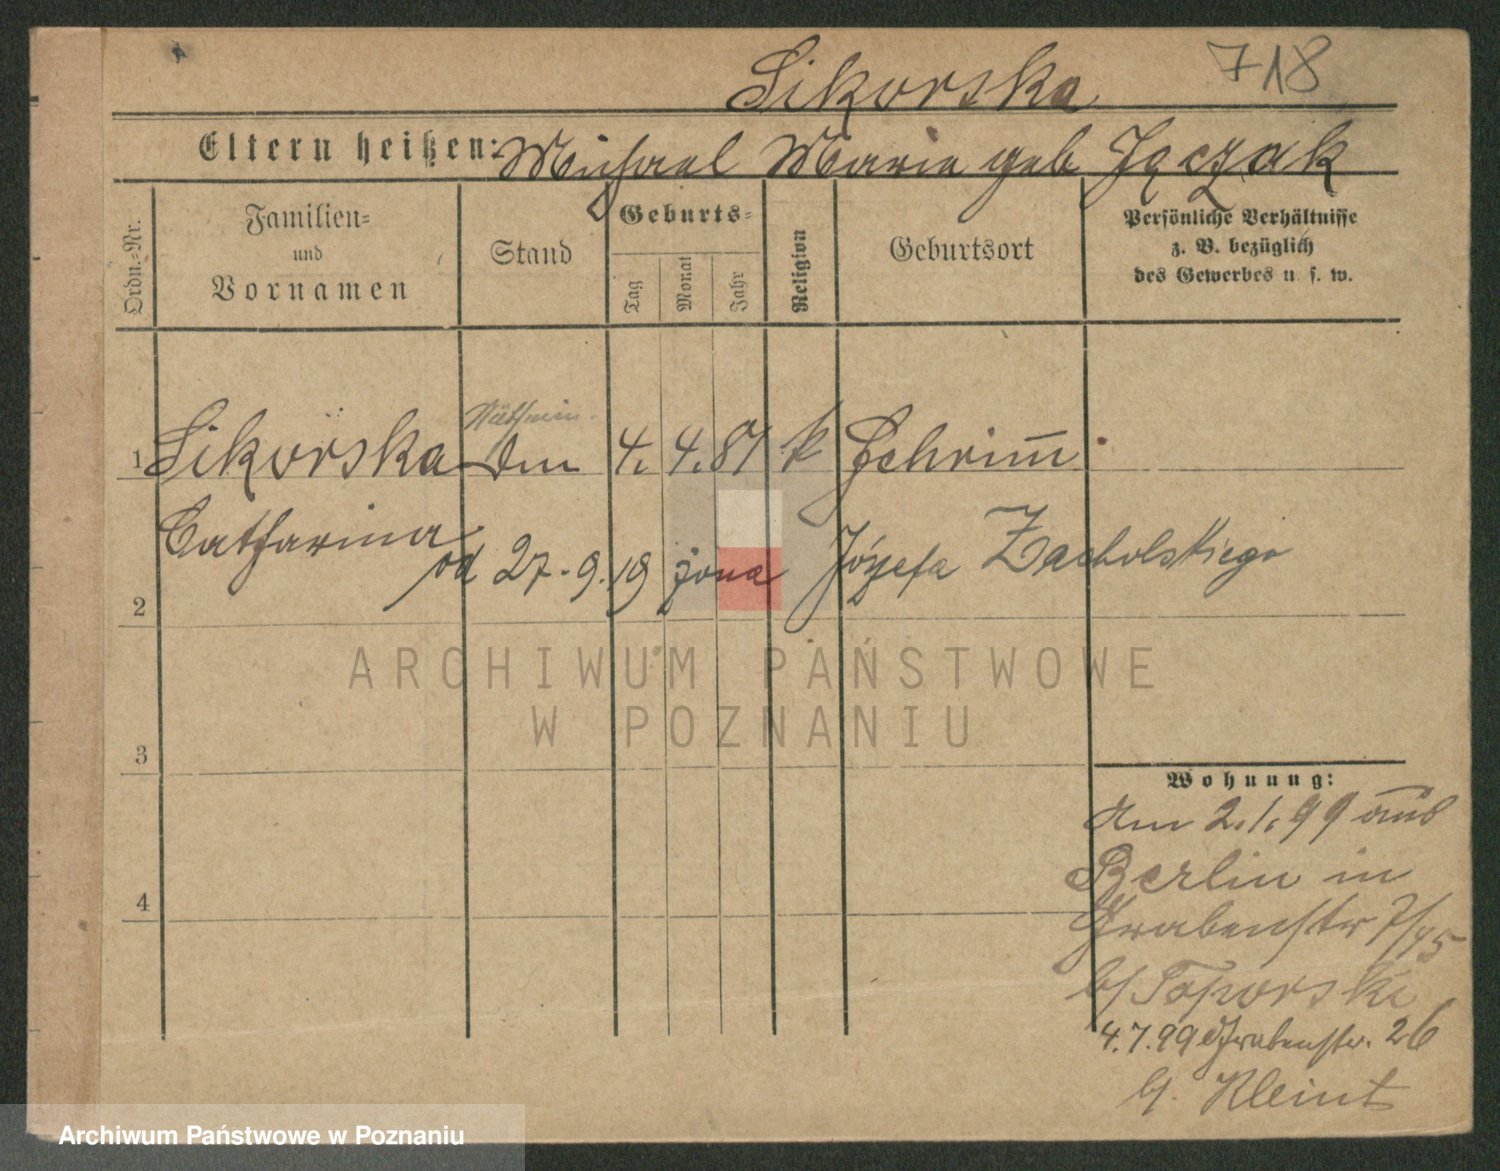 Sikorska 718
Eltern heißen: Michael Marie geb Jęczak
Ordn.-Nr.
Familien-
und
Vornamen
Stand
Geburts-
Tag
Monat
Jahr
Religion
Geburtsort
Persönliche Verhältnisse
z. B. bezüglich
des Gewerbes u. s. w.
Näherin
1 Sikorska 4. 4. 81 k Schrimm
Catharina
od 27.9.19 żona Józefa Zacholskiego
2
ARCHIWUM PAŃSTWOWE
W POZNANIU
3
Wohnung:
Am 2.1.99 aus
Berlin in
Grabenstr
b/ Toporski
4.7.99 Grabenstr. 26
b. Kleint
4
Archiwum Państwowe w Poznaniu